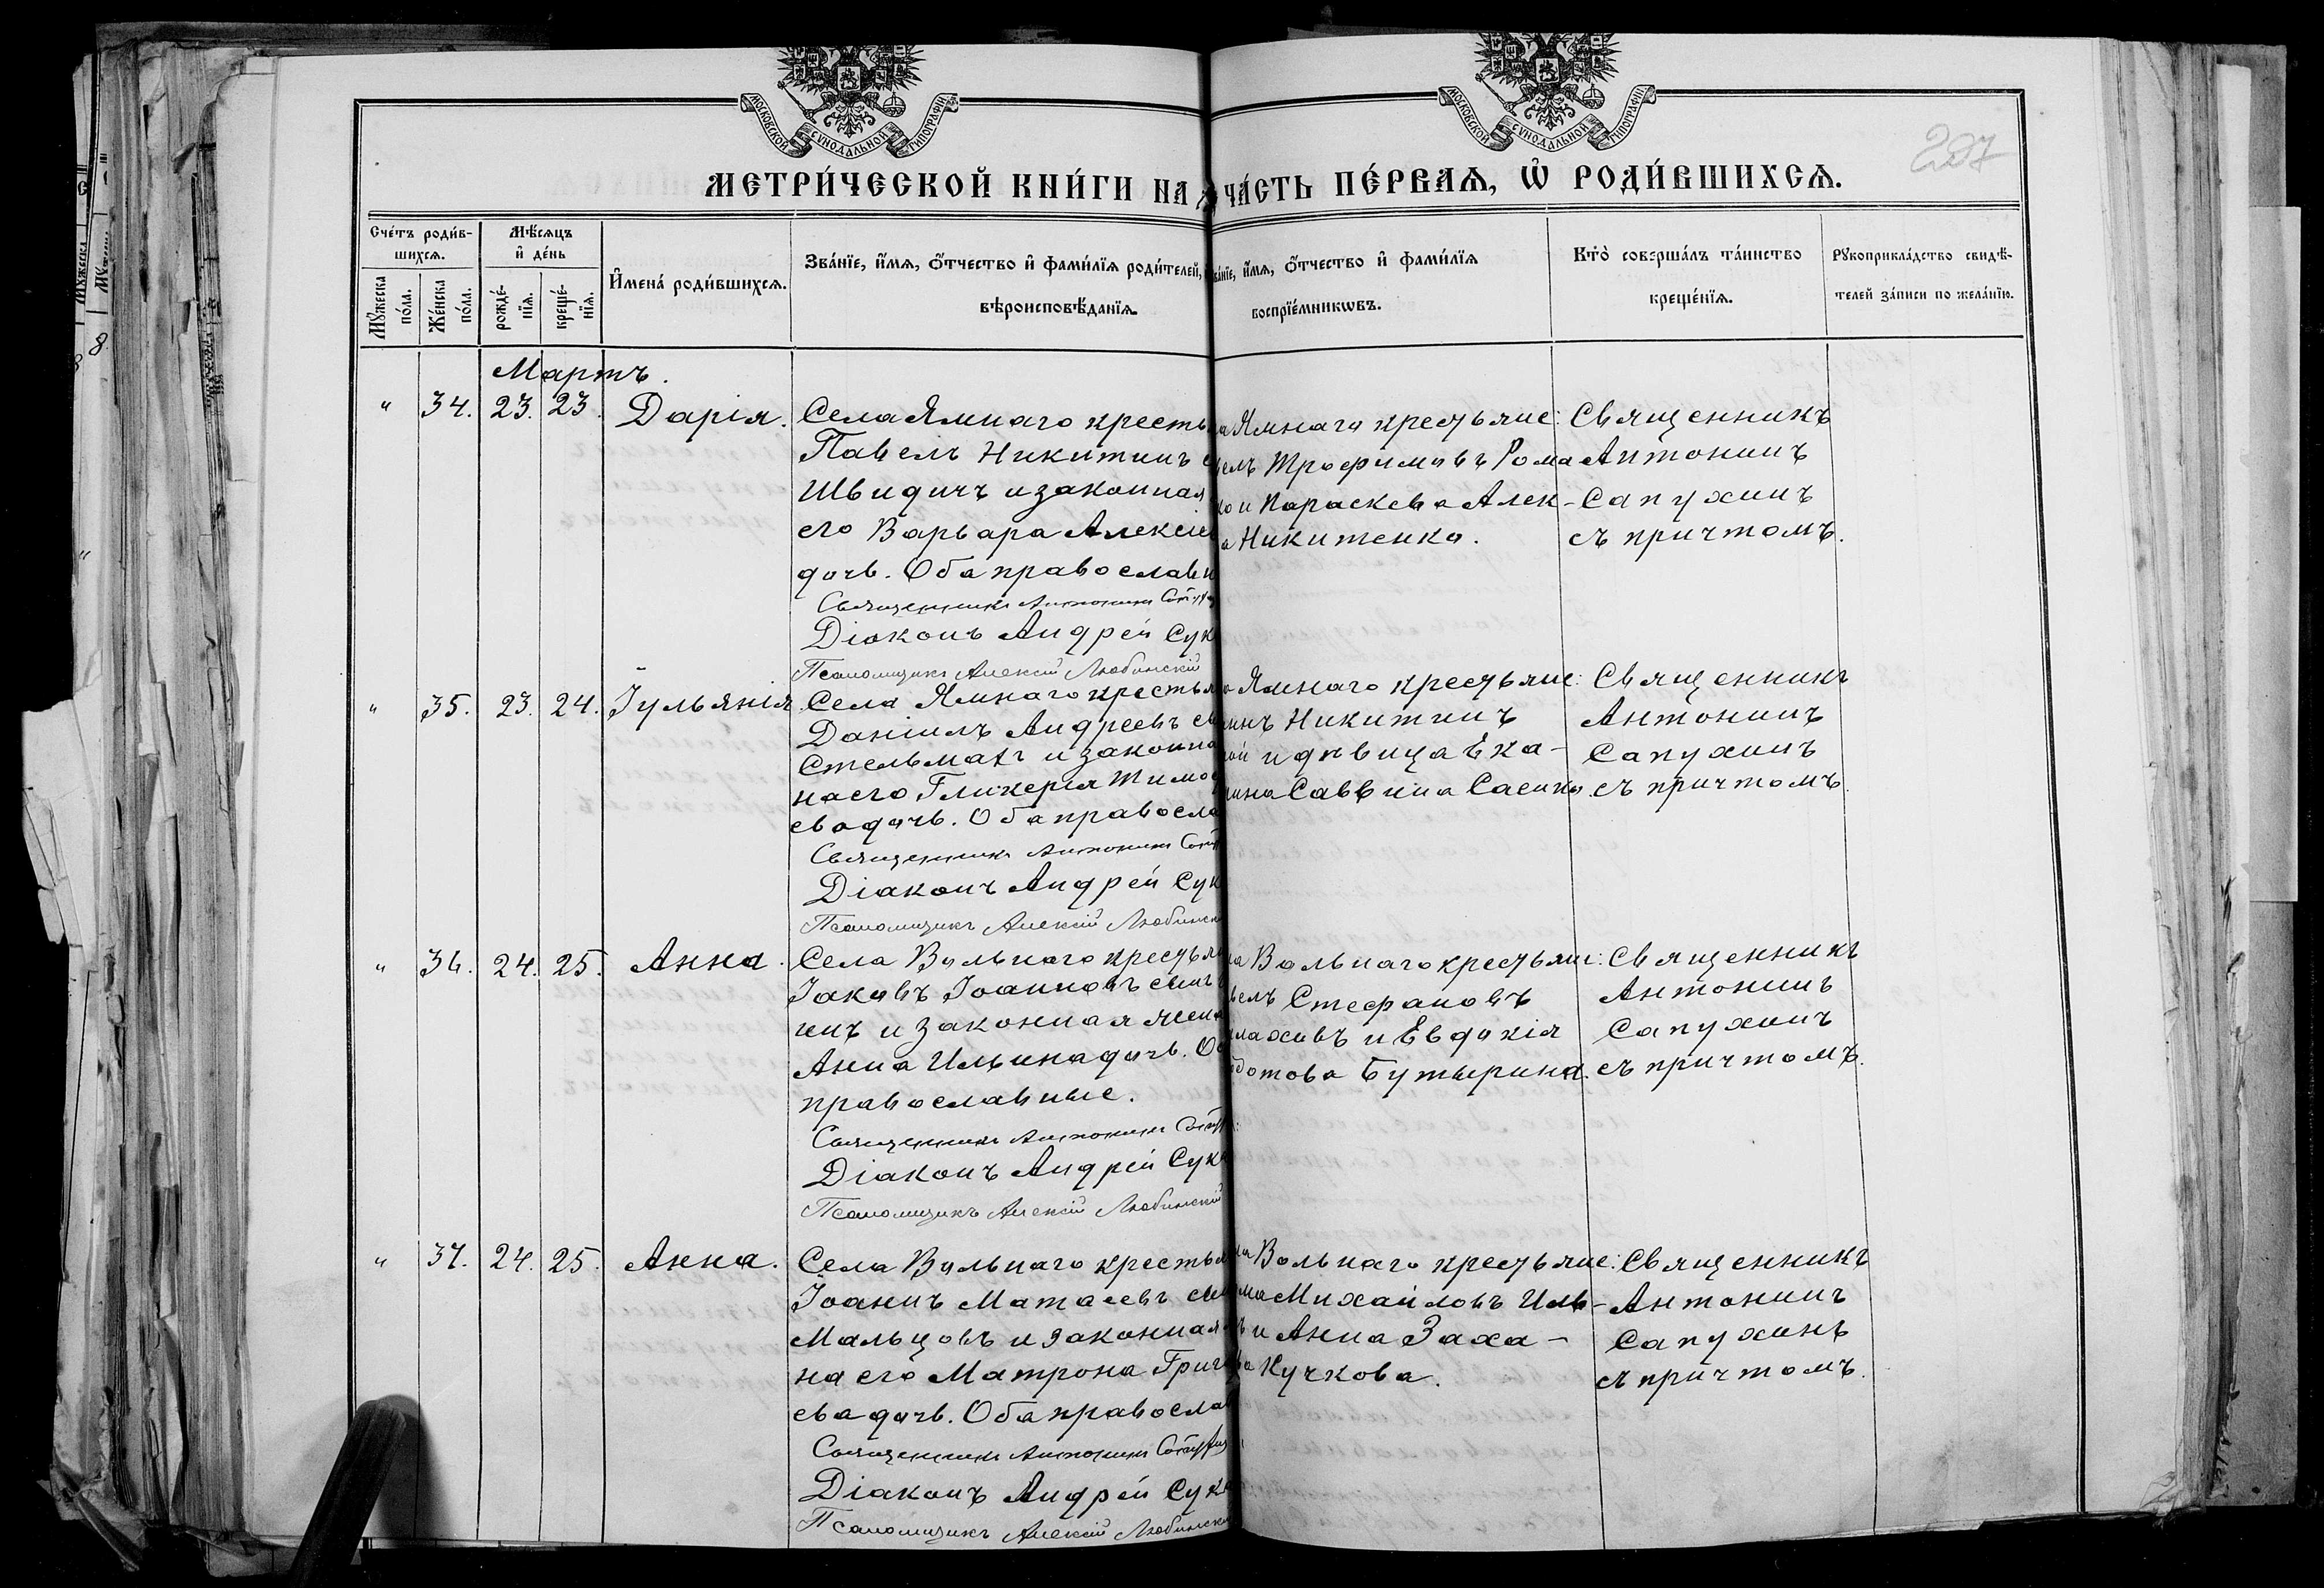 МОСКОВСКОЙ СѴНОДАЛЬНОЙ ТИПОГРАФІИ
МОСКОВСКОЙ СѴНОДАЛЬНОЙ ТИПОГРАФІИ
227
МЕТРИ́ЧЕСКОЙ КНИ́ГИ НА
ЧА́СТЬ ПЕ́РВАѦ, Ѡ҆ РОДИ́ВШИХСѦ.
Сче́тъ роди́в-
шихсѧ.
Мꙋ́жеска по́ла.
Же́нска по́ла.
Мѣ́сѧцъ
и҆ де́нь
рожде́-
нїѧ.
креще́-
нїѧ.
И҆мена̀ роди́вшихсѧ.
Зва́нїе, и҆́мѧ, ѻ҆́тчество и҆ фами́лїѧ роди́телей,
вѣроисповѣ́данїѧ
и҆́мѧ, ѻ҆́тчество и҆ фами́лїѧ
воспрїе́мникѡвъ.
Кто̀ соверша́лъ та́инство
креще́нїѧ.
Рꙋкоприкла́дство свидѣ́-
телей за́писи по жела́нїю.
Мартъ.
" 34. 23. 23. Дарія.
Села Ямнаго кресть
Павелъ Никитинъ с
Швидичъ и законная
его Варвара Алексіев
дочь. Оба православн
Священникъ Антонинъ Сапух
Діаконъ Андрей Сук
Псаломщикъ Алексій Любинскій
а Ямнаго крестьяне:
велъ Трофимовъ Рома
ко и Параскева Алек-
а Никитенко.
Священникъ
Антонинъ
Сапухинъ
съ причтомъ.
" 35. 23. 24. Іульянія
Села Ямнаго крестья
Даніилъ Андреевъ сы
Стельмахъ и законна
на его Гликерія Тимоф
ева дочь. Оба правосла
Священникъ Антонинъ Сапу
Діаконъ Андрей Сук
Псаломщикъ Алексій Любинскі
а Ямнаго крестьяне:
Никитинъ
и дѣвица Ека-
рина Саввина Саенко.
Священникъ
Антонинъ
Сапухинъ
съ причтомъ.
" 36. 24. 25. Анна.
Села Вольнаго крестьян
Іаковъ Іоанновъ сынъ
инъ и законная жена
Анна Ильина дочь. Об
православные.
Священникъ Антонинъ Сапу
Діаконъ Андрей Сук
Псаломщикъ Алексій Любинскій
ла Вольнаго крестьяне:
велъ Стефановъ
лаховъ и Евдокія
Бутырина.
Священникъ
Антонинъ
Сапухинъ
съ причтомъ.
" 37. 24. 25. Анна.
Села Вольнаго крестья
Іоаннъ Матѳеевъ сын
Мальцовъ и законная
на его Матрона Григо
ева дочь. Оба правосла
Священникъ Антонинъ Сапухин
Діаконъ Андрей Сук
Псаломщикъ Алексій Любинскі
ла Вольнаго крестьяне:
ма Михайловъ Иль-
ъ и Анна Заха-
ва Кучкова.
Священникъ
Антонинъ
Сапухинъ
съ причтомъ.